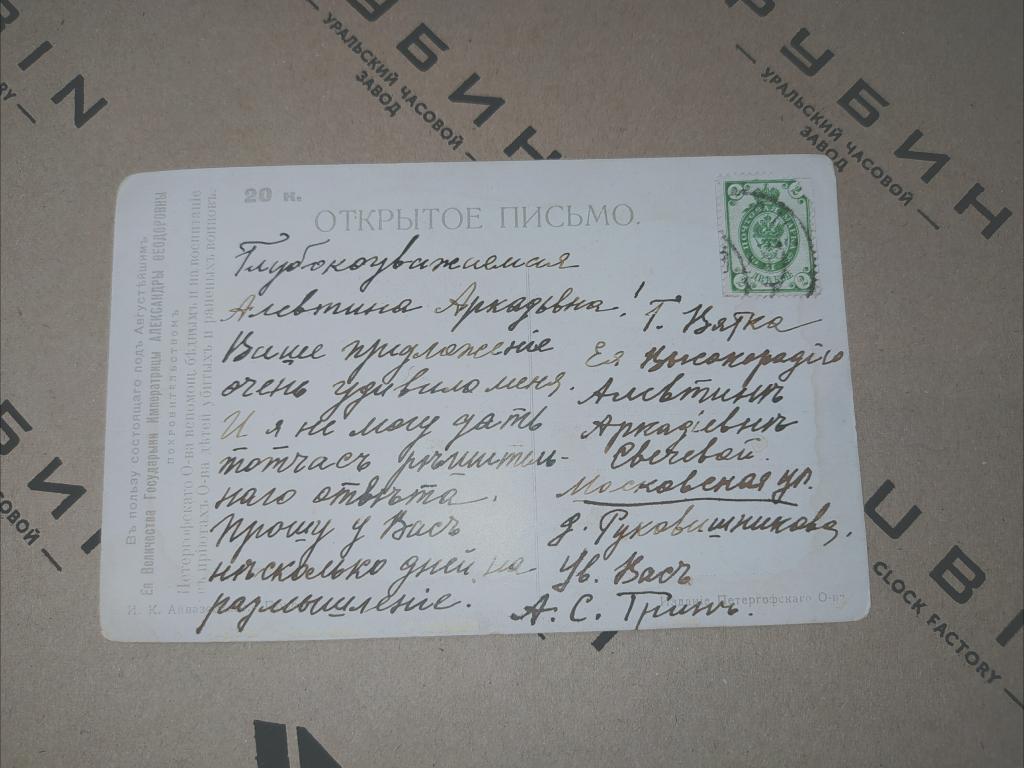 BIN
FACTORY —
РУБИН
— УРАЛЬСКИЙ ЧАСОВОЙ —
ЗАВОД
РУБИН
— УРАЛЬСКИЙ ЧАСОВОЙ —
ЗАВОД
Въ пользу состоящаго подъ Августѣйшимъ
Ея Величества Государыни Императрицы АЛЕКСАНДРЫ ѲЕОДОРОВНЫ
ПОКРОВИТЕЛЬСТВОМЪ
Петергофскаго О-ва вспомощ. бѣднымъ и на воспитаніе
въ пріютахъ О-ва дѣтей убитыхъ и раненыхъ воиновъ.
20 к.
ОТКРЫТОЕ ПИСЬМО.
Глубокоуважаемая
Алевтина Аркадьвна!
Ваше предложеніе
очень удивило меня.
И я не могу дать
тотчасъ рѣшитель-
наго отвѣта.
Прошу у Васъ
нѣсколько дней на
размышленіе.
Г. Вятка
Ея Высокородію
Алевтинѣ
Аркадіевнѣ
Свечевой
Московская ул.
д. Рукавишникова.
Ув. Васъ
А. С. Гринъ.
И. К. Айваз
Изданіе Петергофскаго О-ва
ЧАСОВОЙ —
UBI
CLOCK FACTORY —